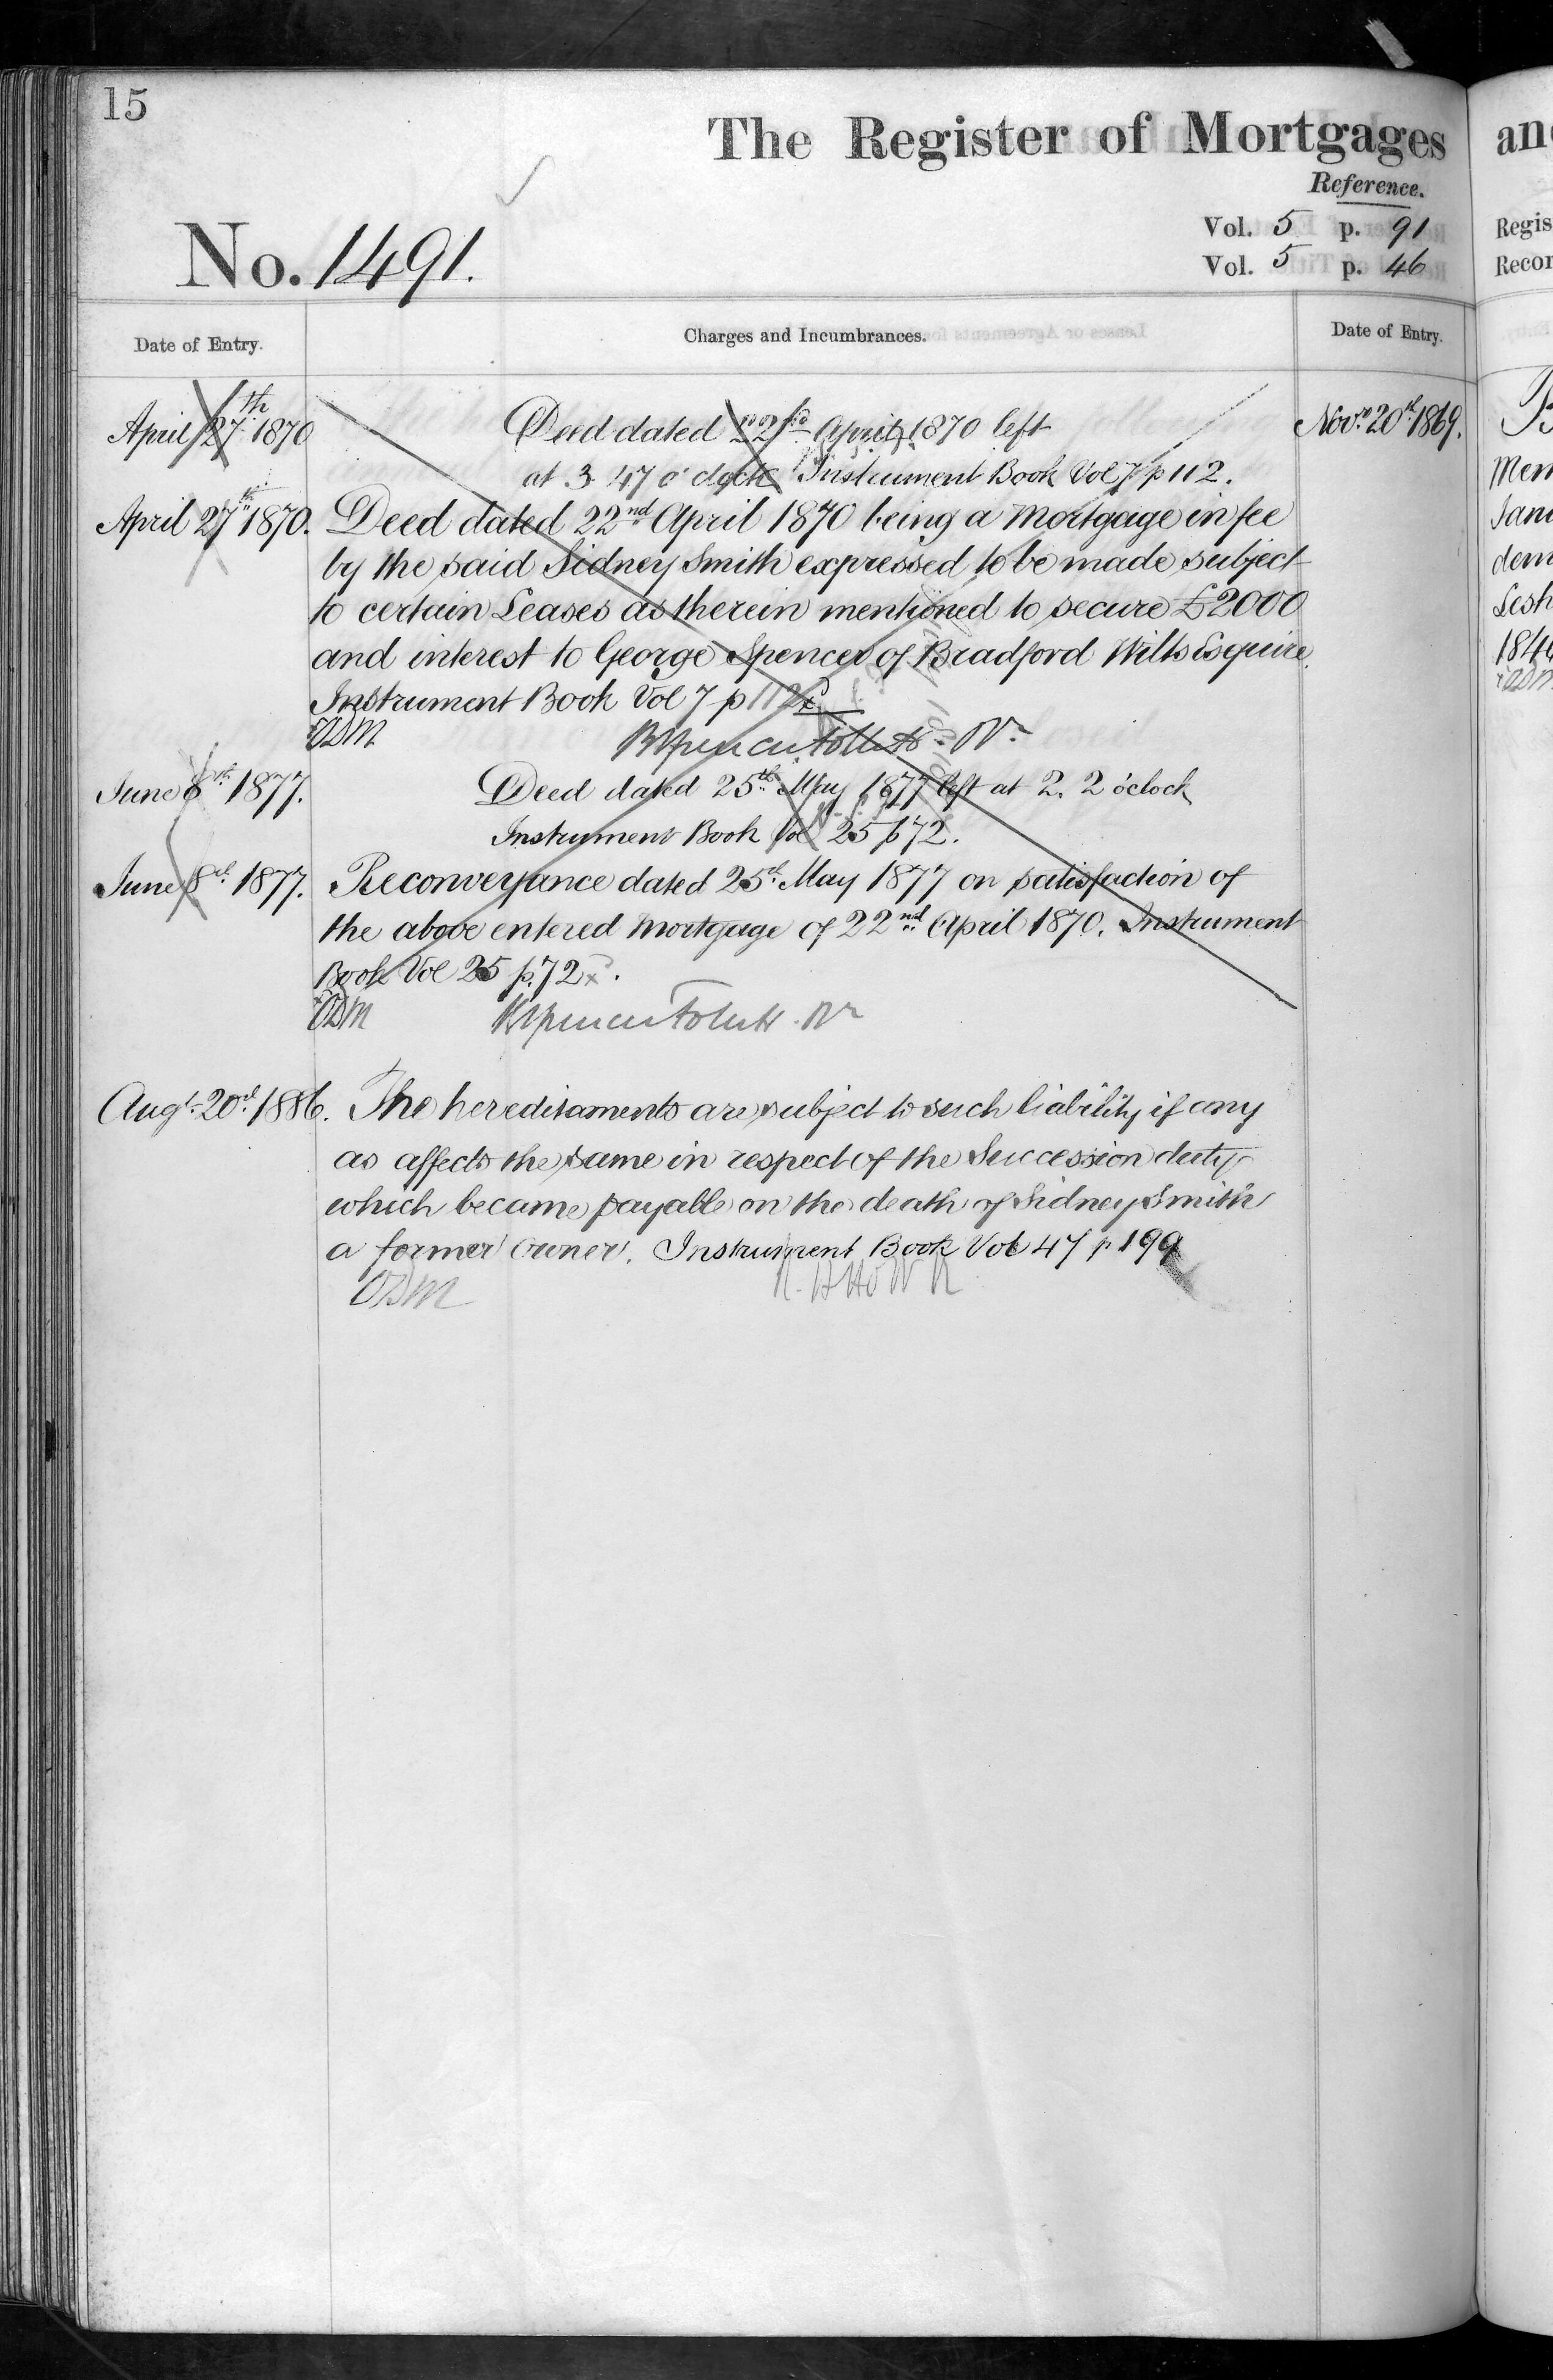 15
The Register of Mortgages
Reference.
Vol. 5 p. 91
Vol. 5 p. 46
No. 1491.
Date of Entry.
Charges and Incumbrances.
Date of Entry.
April 27th 1870
Deed dated 22nd April 1870 left
at 3 47 o'clock Instrument Book Vol 7 p 112.
Novr 20th 1869.
April 27th 1870.
Deed dated 22nd April 1870 being a Mortgage in fee
by the said Sidney Smith expressed to be made subject
to certain Leases as therein mentioned to secure £2000
and interest to George Spencer of Bradford Wilts Esquire.
Instrument Book Vol 7 p 112
June 8th 1877.
Deed dated 25th May 1877 left at 2. 2 o'clock
Instrument Book Vol 25 p 72.
June 8th 1877.
Reconveyance dated 25th May 1877 on satisfaction of
the above entered Mortgage of 22nd April 1870. Instrument
Book Vol 25 p. 72.
Augt 20th 1886.
The hereditaments are subject to such liability if any
as affects the same in respect of the Succession duty
which became payable on the death of Sidney Smith
a former Owner. Instrument Book Vol 47 p 199
and
Regis
Recor
1844